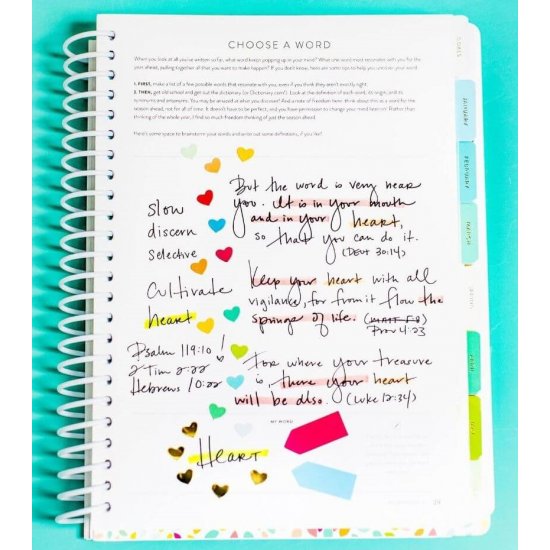 CHOOSE A WORD
When you look at all you've written so far, what word keeps popping up in your mind? What one word most resonates with you for the
year ahead, pulling together all that you want to make happen? If you don't know, here are some tips to help you uncover your word:
1. FIRST, make a list of a few potential words that resonate with you, even if you think they aren't exactly right.
2. THEN, get old school and get out the dictionary (or Dictionary.com!). Look at the definition of each word, its origin, and its
synonyms and antonyms. You may be amazed at what you discover! And a note of freedom here: think about this as a word for the
season ahead, not for all of time. It doesn't have to be perfect, and you have permission to change your mind later on! Rather than
thinking of the whole year, I find so much freedom thinking of just the season ahead.
Here's some space to brainstorm your words and write out some definitions, if you like!
But the word is very near
you. It is in your mouth
and in your heart,
so that you can do it.
(Deut 30:14)
slow
discern
selective
Cultivate
heart
Keep your heart with all
vigilance, for from it flow the
springs of life.
Prov 4:23
Psalm 119:10!
2 Tim 2:22
Hebrews 10:22
For where your treasure
is, there your heart
will be also. (Luke 12:34)
MY WORD
HEART
GOALS
JANUARY
FEBRUARY
MARCH